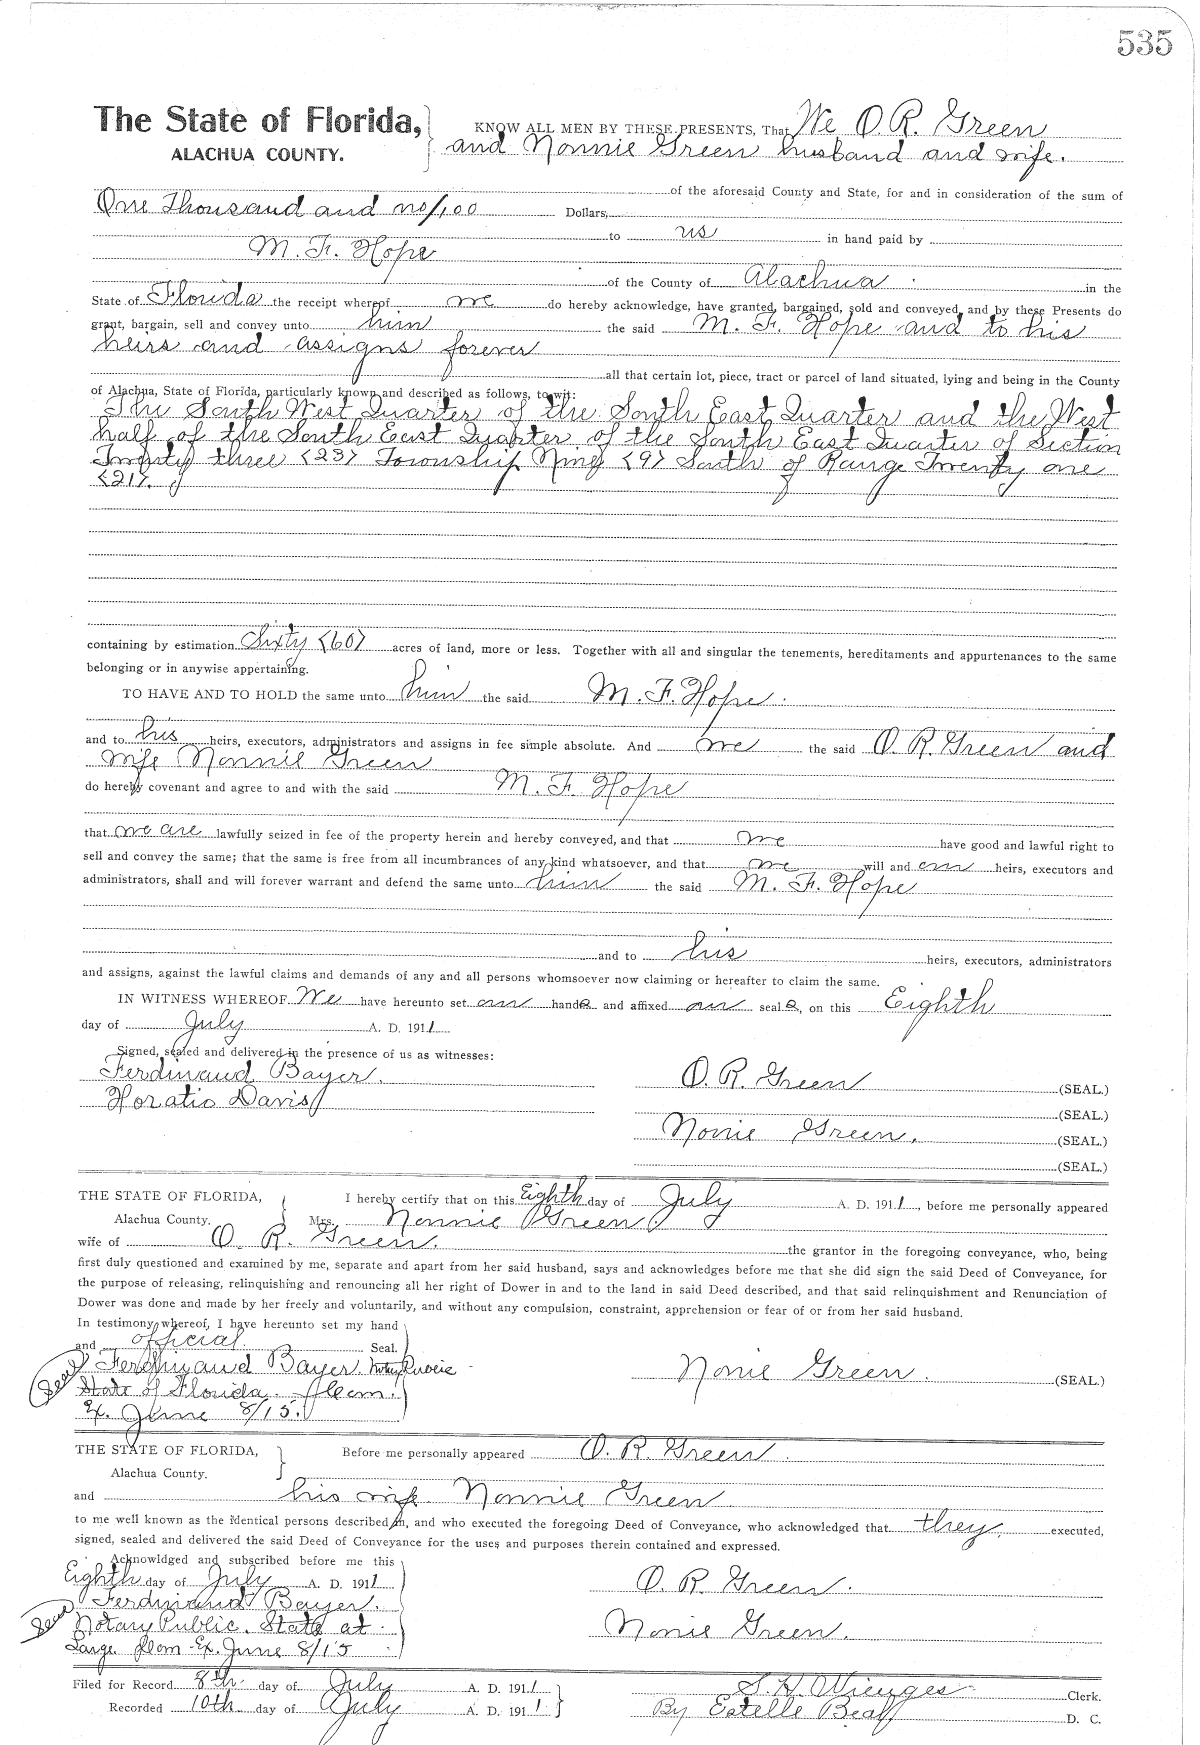 535
The State of Florida, KNOW ALL MEN BY THESE PRESENTS, That We O. R. Green
ALACHUA COUNTY. and Nonnie Green husband and wife.
of the aforesaid County and State, for and in consideration of the sum of
One Thousand and no/100 Dollars,
to us in hand paid by
M. F. Hope
of the County of Alachua in the
State of Florida the receipt whereof we do hereby acknowledge, have granted, bargained, sold and conveyed, and by these Presents do
grant, bargain, sell and convey unto him the said M. F. Hope and to his
heirs and assigns forever
all that certain lot, piece, tract or parcel of land situated, lying and being in the County
of Alachua, State of Florida, particularly known and described as follows, to wit:
The South West Quarter of the South East Quarter and the West
half of the South East Quarter of the South East Quarter of Section
Twenty three <23> Township Nine <9> South of Range Twenty one
<21>.
containing by estimation Sixty <60> acres of land, more or less. Together with all and singular the tenements, hereditaments and appurtenances to the same
belonging or in anywise appertaining.
TO HAVE AND TO HOLD the same unto him the said M. F. Hope.
and to his heirs, executors, administrators and assigns in fee simple absolute. And we the said O. R. Green and
wife Nonnie Green
do hereby covenant and agree to and with the said M. F. Hope
that we are lawfully seized in fee of the property herein and hereby conveyed, and that we have good and lawful right to
sell and convey the same; that the same is free from all incumbrances of any kind whatsoever, and that we will and our heirs, executors and
administrators, shall and will forever warrant and defend the same unto him the said M. F. Hope
and to his heirs, executors, administrators
and assigns, against the lawful claims and demands of any and all persons whomsoever now claiming or hereafter to claim the same.
IN WITNESS WHEREOF We have hereunto set our hands and affixed our seals, on this Eighth
day of July A. D. 1911
Signed, sealed and delivered in the presence of us as witnesses:
Ferdinand Bayer. O. R. Green (SEAL.)
Horatio Davis (SEAL.)
Nonie Green. (SEAL.)
(SEAL.)
THE STATE OF FLORIDA, I hereby certify that on this Eighth day of July A. D. 1911, before me personally appeared
Alachua County. Mrs. Nonnie Green
wife of O. R. Green. the grantor in the foregoing conveyance, who, being
first duly questioned and examined by me, separate and apart from her said husband, says and acknowledges before me that she did sign the said Deed of Conveyance, for
the purpose of releasing, relinquishing and renouncing all her right of Dower in and to the land in said Deed described, and that said relinquishment and Renunciation of
Dower was done and made by her freely and voluntarily, and without any compulsion, constraint, apprehension or fear of or from her said husband.
In testimony whereof, I have hereunto set my hand
and official Seal.
Seal Ferdinand Bayer. Notary Public
State of Florida. Nonie Green. (SEAL.)
Ex. June 8/15.
THE STATE OF FLORIDA, Before me personally appeared O. R. Green
Alachua County.
and his wife Nonnie Green
to me well known as the identical persons described in, and who executed the foregoing Deed of Conveyance, who acknowledged that they executed,
signed, sealed and delivered the said Deed of Conveyance for the uses and purposes therein contained and expressed.
Acknowldged and subscribed before me this
Eighth day of July A. D. 1911 O. R. Green.
Ferdinand Bayer.
Seal Notary Public. State at Nonie Green.
Large. Ex. June 8/15
Filed for Record 8th day of July A. D. 1911 S. H. Wienges Clerk.
Recorded 10th day of July A. D. 1911 By Estelle Beall D. C.